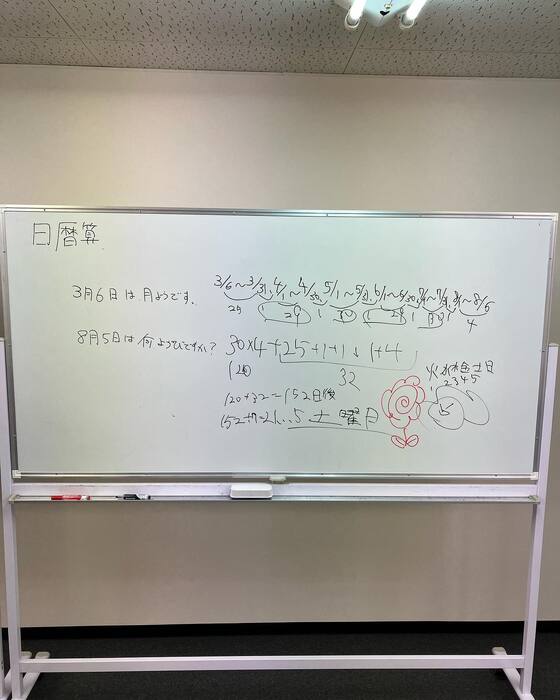 日暦算
3/6~3/31, 4/1~4/30, 5/1~5/31, 6/1~6/30, 7/1~7/31, 8/1~8/5
3月6日は月ようです。
25 1 29 1 30 1 29 1 30 1 4
8月5日は何ようびですか?
30×4+25+1+1+1+4
120
32
火水木金土日
1 2 3 4 5
120+32=152日後
152÷7=21...5 土曜日